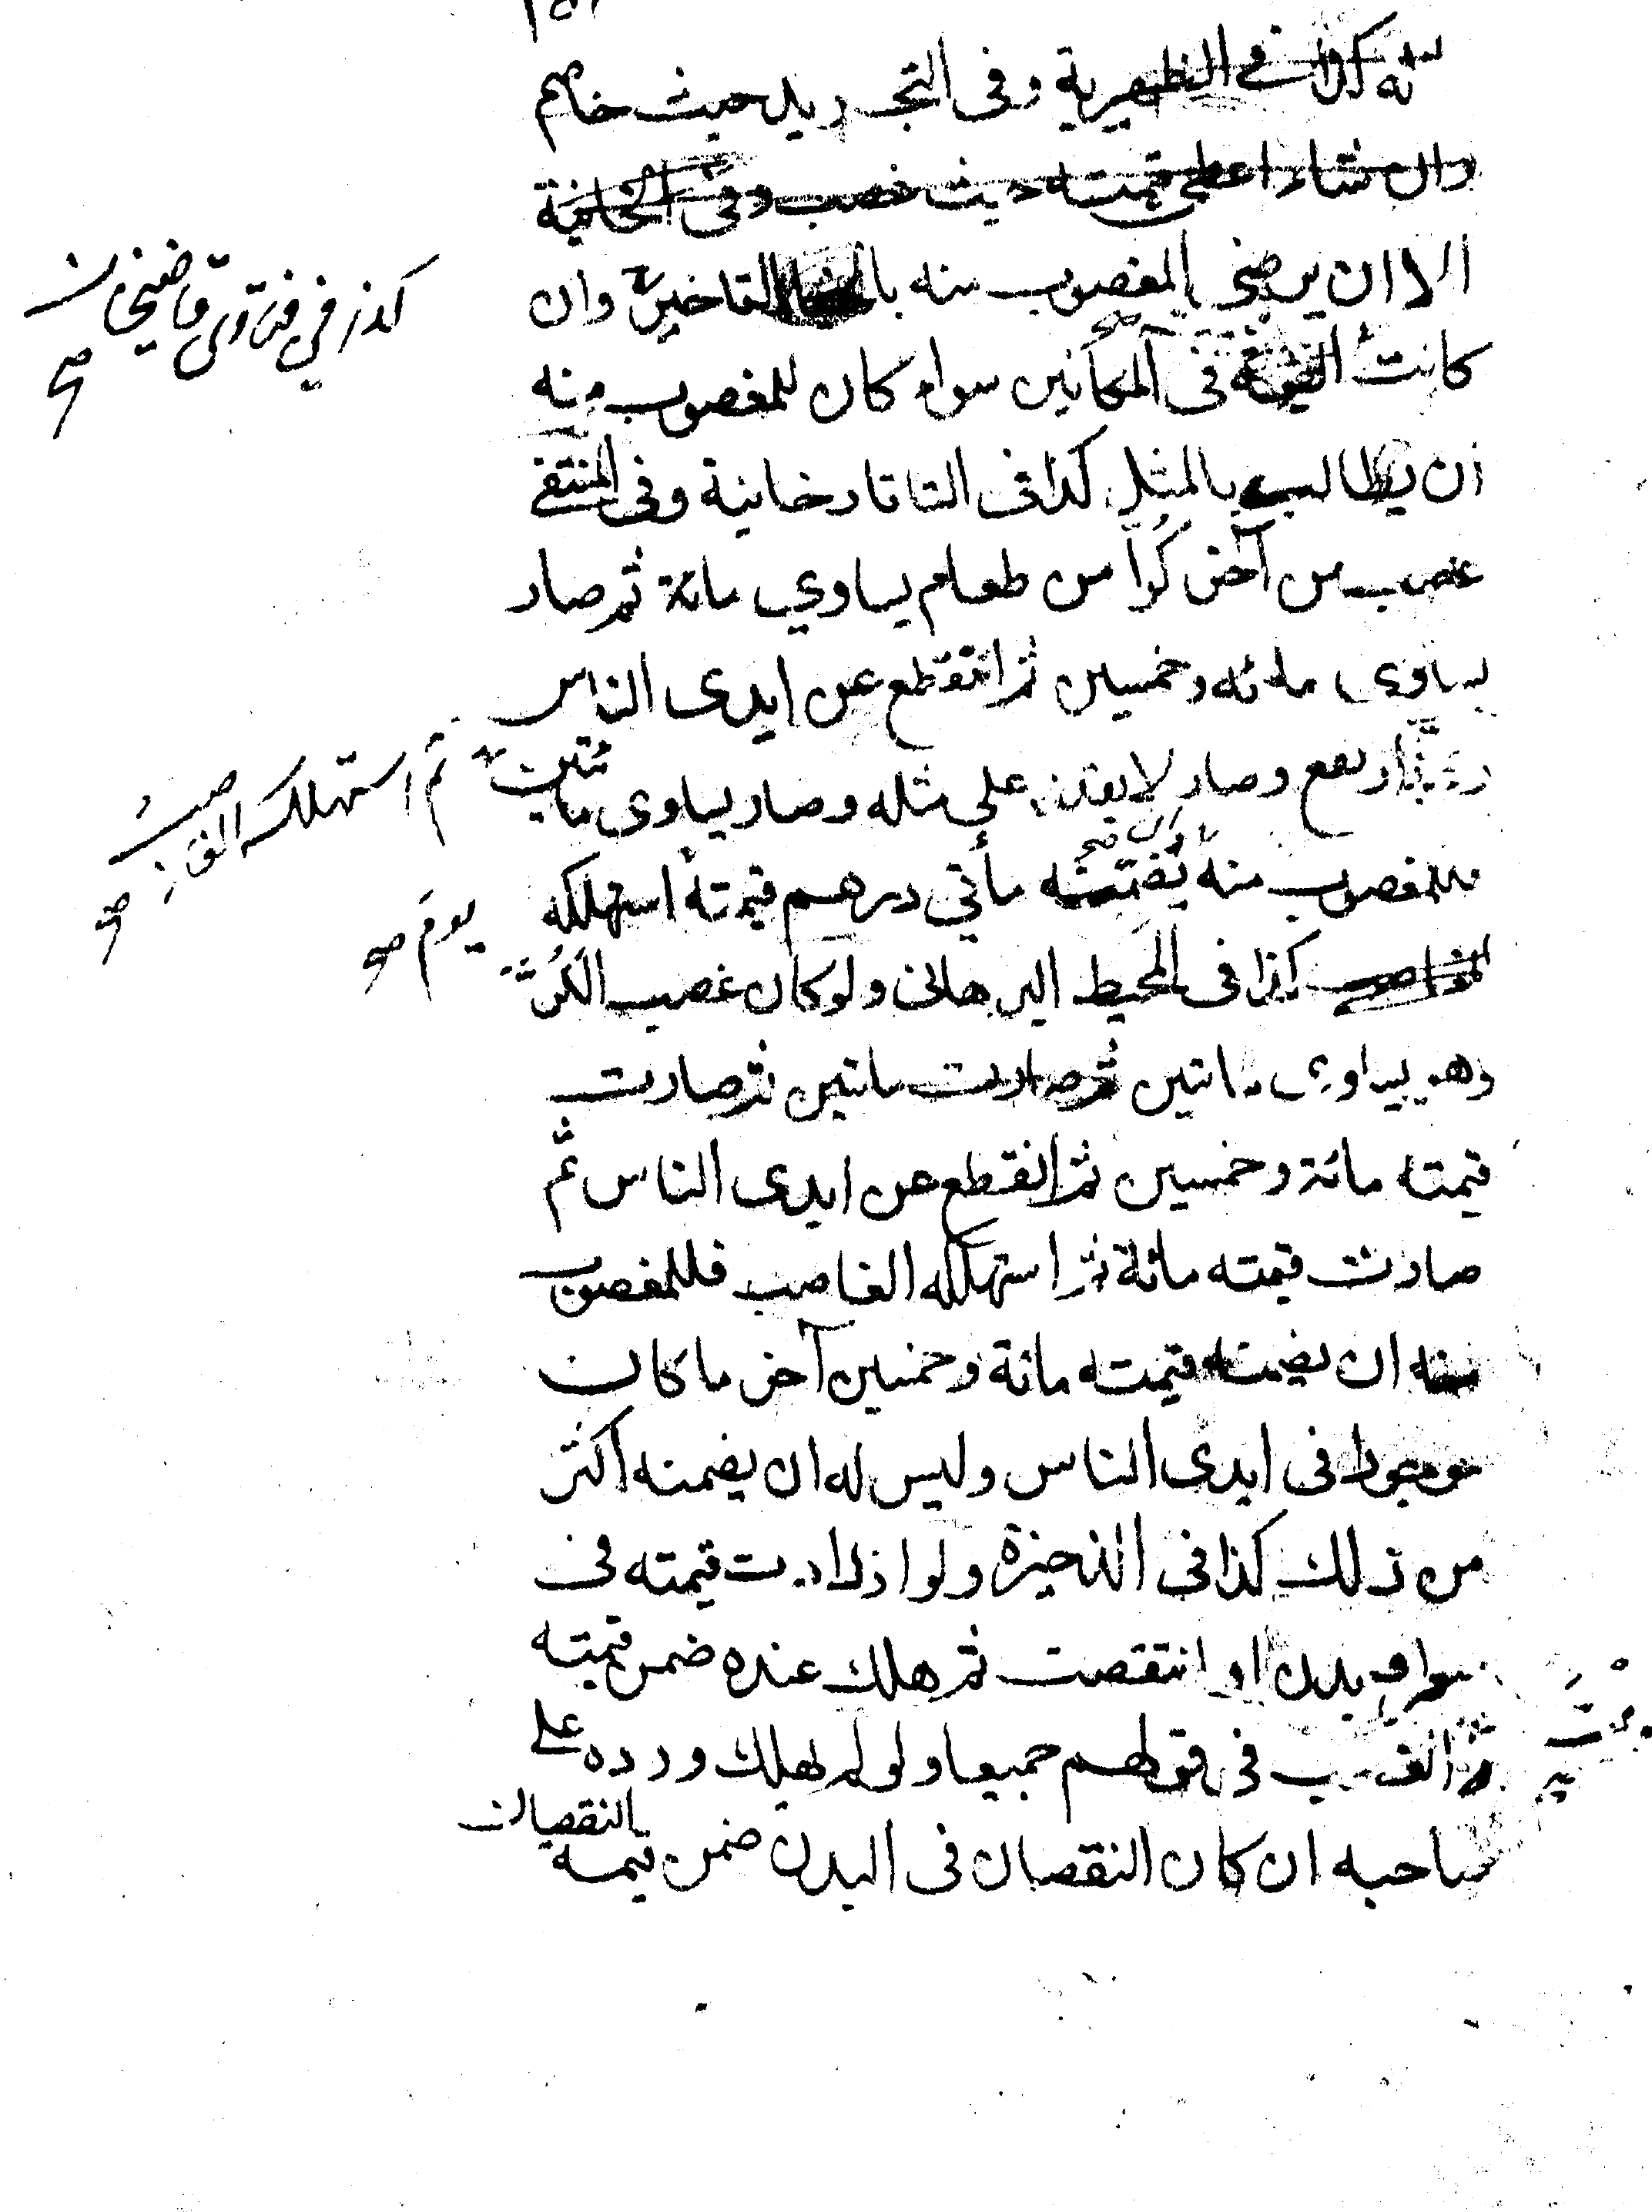 كذا في الظهيرية وفى التجريد حيث خاصم
وان شاء اعطى قيمته حيث غصب وفى الخانية
الا ان يرضى المغصوب منه بالتاخير وان
كانت القيمة فى المكانين سواء كان للمغصوب منه
ان يطالب بالمثل كذا فى التاتارخانية وفى المنتقى
غصب من آخر كُرّاً من طعام يساوي مائة ثم صار
يساوى مائه وخمسين ثم انقطع عن ايدى الناس
وارتفع وصار لا يقدر على مثله وصار يساوى مائتين
فللمغصوب منه ان يضمنه مأتي درهم قيمته استهلكه
الغاصب كذا فى المحيط البرهانى ولو كان غصب الكُرّ
وهو يساوى مائتين ثم صارت مائتين ثم صارت
قيمته مائة وخمسين ثم انقطع عن ايدى الناس ثم
صارت قيمته مائة ثم استهلكه الغاصب فللمغصوب
منه ان يضمنه قيمته مائة وخمسين آخر ما كان
موجودا فى ايدى الناس وليس له ان يضمنه اكثر
من ذلك كذا فى الذخيرة ولو ازدادت قيمته فى
بدن او انتقصت ثم هلك عنده ضمن قيمته
فى قولهم جميعا ولو لم يهلك ورده على
صاحبه ان كان النقصان فى البدن ضمن قيمة النقصان
كذا في فتاوى قاضيخان
صح
ثم استهلكه الغاصب
صح
يوم صح